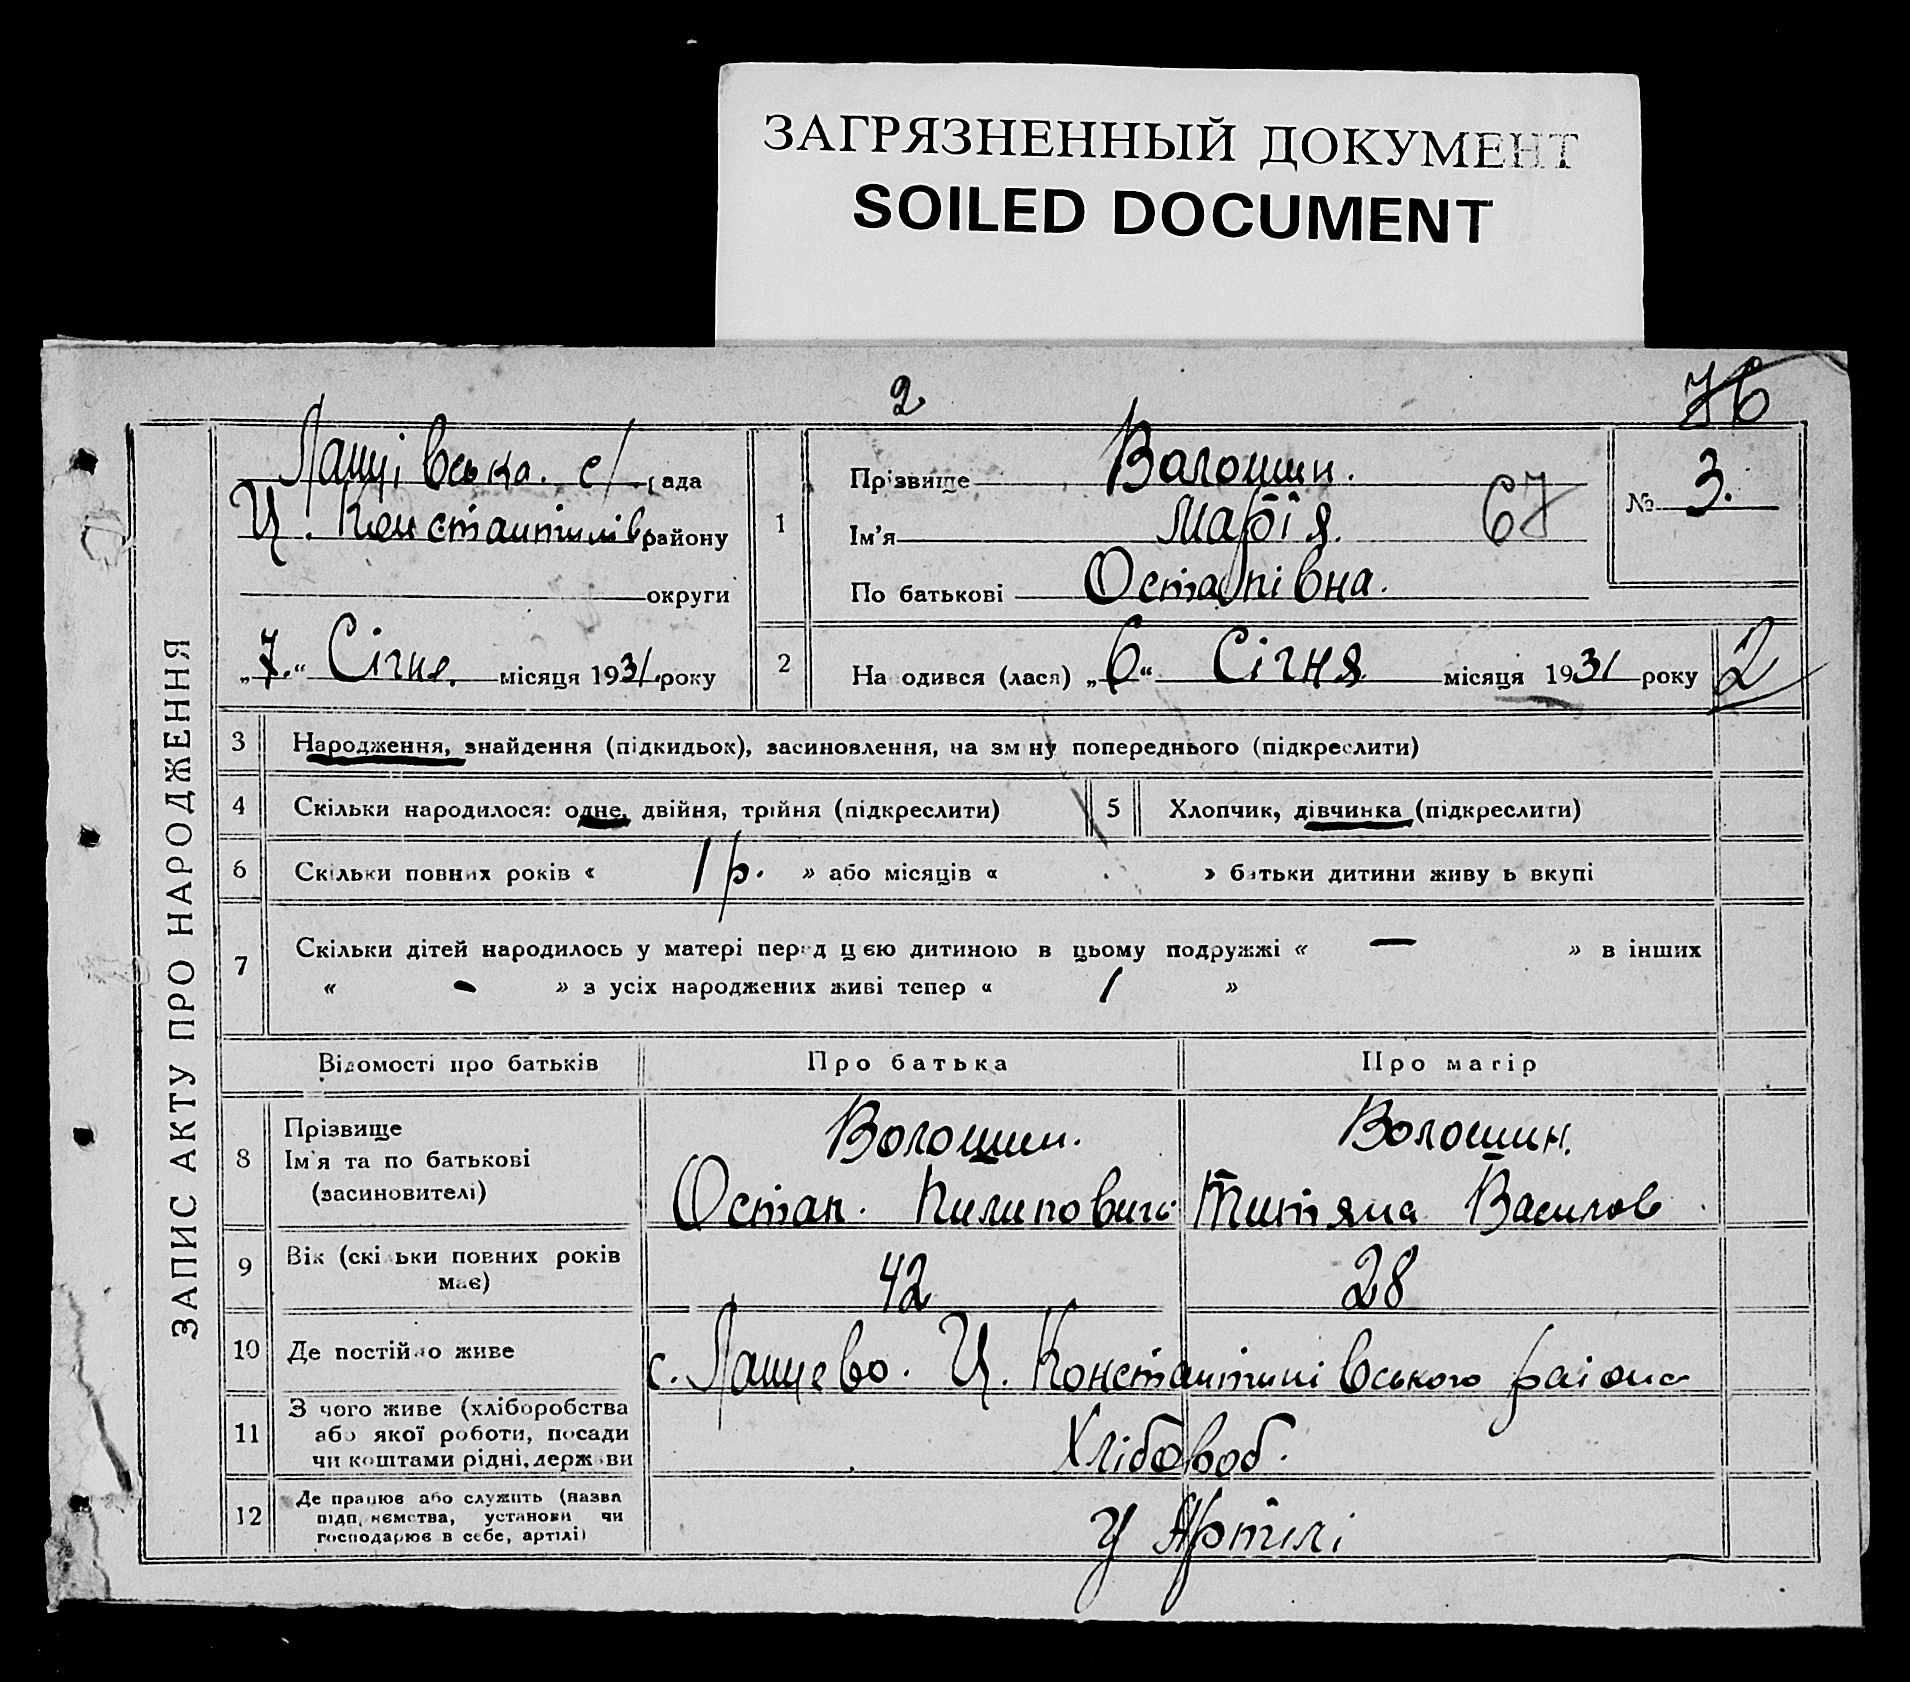 ЗАГРЯЗНЕННЫЙ ДОКУМЕНТ
SOILED DOCUMENT
2
76
ЗАПИС АКТУ ПРО НАРОДЖЕННЯ
Лащівська. с/рада
Ц. Константиніврайону
округи
„7.“ Січня. місяця 1931 року
1
Прізвище Волошин.
Ім'я Марія.
По батькові Остапівна.
67
№ 3.
2
Народився (лася) „6“ Січня місяця 1931 року
2
3 Народження, знайдення (підкидьок), засиновлення, на зміну попереднього (підкреслити)
4 Скільки народилося: одне, двійня, трійня (підкреслити)
5 Хлопчик, дівчинка (підкреслити)
6 Скільки повних років « 1 р. » або місяців « » батьки дитини живуть вкупі
7 Скільки дітей народилось у матері перед цією дитиною в цьому подружжі « — » в інших
« - » з усіх народжених живі тепер « 1 »
Відомості про батьків Про батька Про матір
8 Прізвище
Ім'я та по батькові
(засиновителі)
Волошин.
Остап. Пилипович
Волошин.
Титяна Василов
9 Вік (скільки повних років
має)
42
28
10 Де постійно живе
с. Лащево. Ц. Константинівського района
11 З чого живе (хліборобства
або якої роботи, посади
чи коштами рідні, держави
Хлібороб.
12 Де працює або служить (назва
підприємства, установи чи
господарює в себе, артілі)
У Артілі